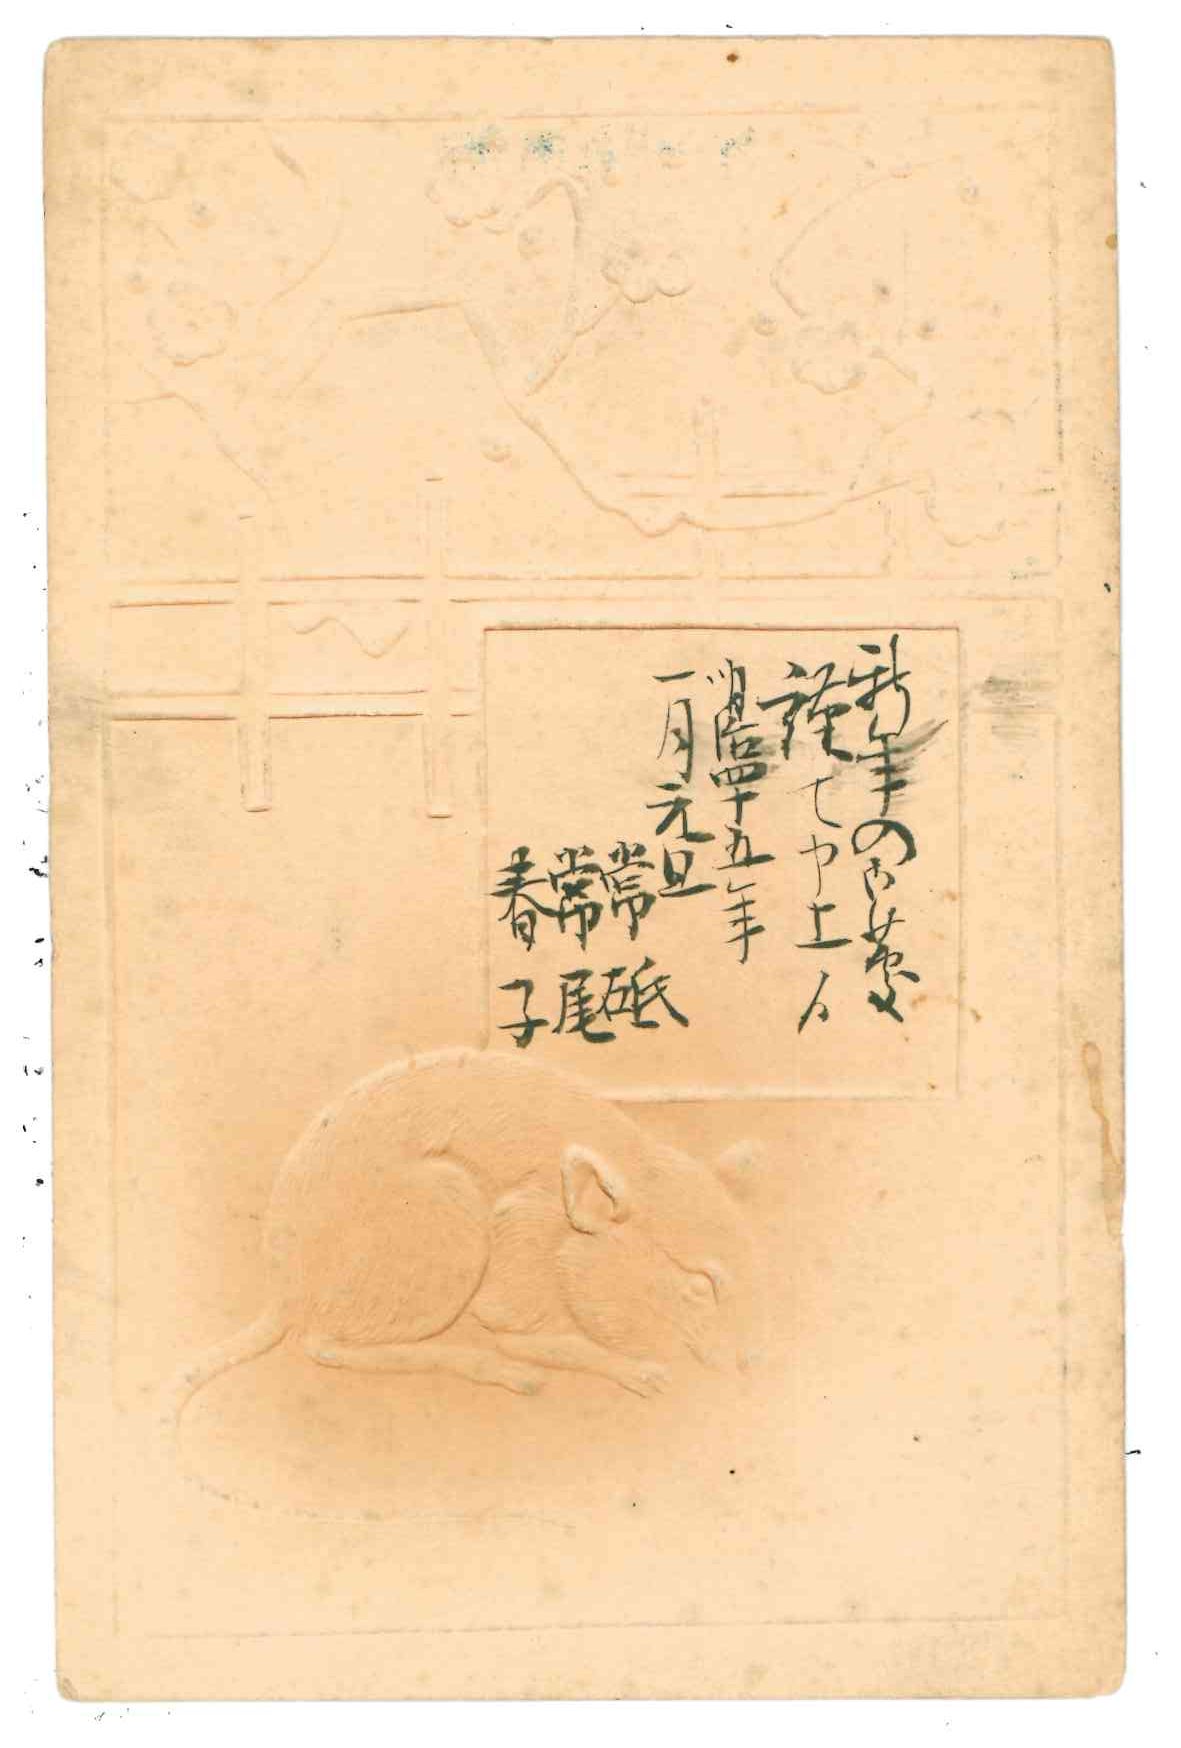 新年の御慶
謹て申上候
明治四十五年
一月元旦
常砥
常尾
春子